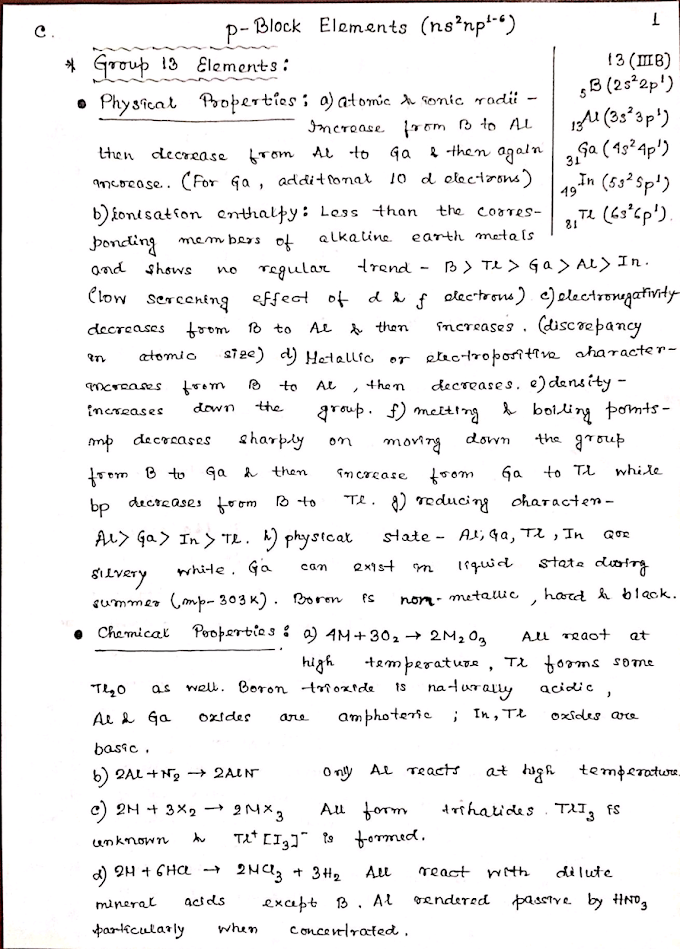 C. p-Block Elements (ns²np¹⁻⁶) 1
* Group 13 Elements:
13 (IIIB)
₅B (2s²2p¹)
₁₃Al (3s²3p¹)
₃₁Ga (4s²4p¹)
₄₉In (5s²5p¹)
₈₁Tl (6s²6p¹).
• Physical Properties: a) atomic & ionic radii –
Increase from B to Al
then decrease from Al to Ga & then again
increase. (For Ga, additional 10 d electrons)
b) ionisation enthalpy: Less than the corres-
ponding members of alkaline earth metals
and shows no regular trend – B > Tl > Ga > Al > In.
(low screening effect of d & f electrons) c) electronegativity
decreases from B to Al & then increases. (discrepancy
in atomic size) d) Metallic or electropositive character–
increases from B to Al, then decreases. e) density –
increases down the group. f) melting & boiling points–
mp decreases sharply on moving down the group
from B to Ga & then increase from Ga to Tl while
bp decreases from B to Tl. g) reducing character–
Al > Ga > In > Tl. h) physical state – Al, Ga, Tl, In are
silvery white. Ga can exist in liquid state during
summer (mp-303K). Boron is non-metallic, hard & black.
• Chemical Properties: a) 4M + 3O₂ → 2M₂O₃ All react at
high temperature, Tl forms some
Tl₂O as well. Boron trioxide is naturally acidic,
Al & Ga oxides are amphoteric; In, Tl oxides are
basic.
b) 2Al + N₂ → 2AlN Only Al reacts at high temperature.
c) 2M + 3X₂ → 2MX₃ All form trihalides. TlI₃ is
unknown & Tl⁺[I₃]⁻ is formed.
d) 2M + 6HCl → 2MCl₃ + 3H₂ All react with dilute
mineral acids except B. Al rendered passive by HNO₃
particularly when concentrated.